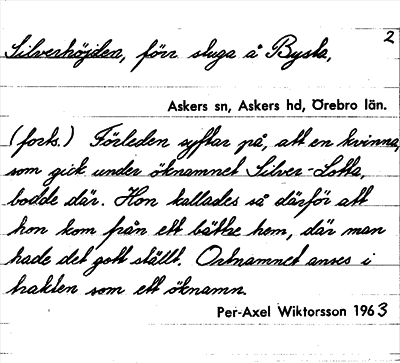 2
Silverhöjden, förr stuga å Bysta,
Askers sn, Askers hd, Örebro län.
(forts.) Förleden syftar på, att en kvinna,
som gick under öknamnet Silver-Lotta,
bodde där. Hon kallades så därför att
hon kom från ett bättre hem, där man
hade det gott ställt. Ortnamnet anses i
trakten som ett öknamn.
Per-Axel Wiktorsson 1963